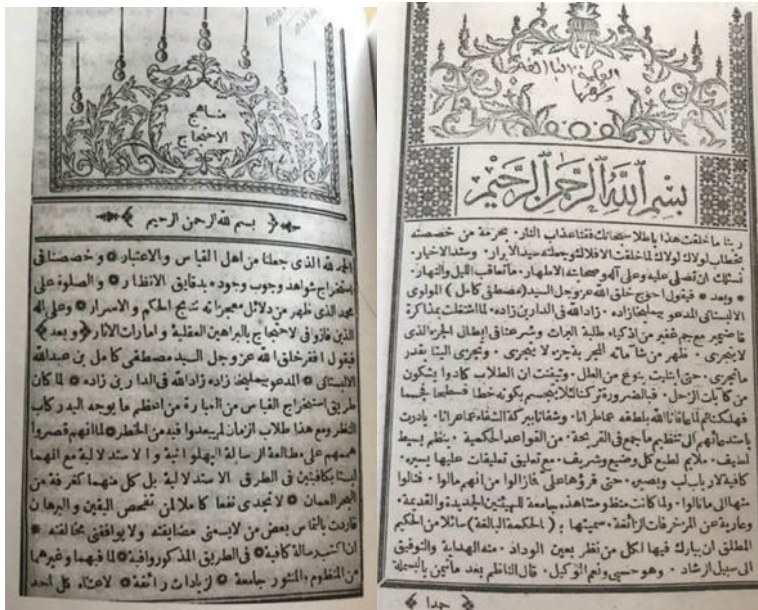 مناهج
الاحتجاج
بسم لله الرحمن الرحيم
الحمد لله الذى جعلنا من اهل القياس والاعتبار وخصصنا فى
استخراج شواهد وجوب وجوده بدقايق الانظار والصلوة على
محمد الذى ظهر من دلائل معجزاته نتيج الحكم والاسرار وعلى اله
الذين فازوا فى الاحتجاج بالبراهين العقلية وامارات الاثار وبعد
فيقول افقر خلق الله عز وجل السيد مصطفى كامل بن عبدالله
الالبستانى المدعو زاده زاد الله فى الدارين زاده لما كان
طريق استخراج القياس من المبارة من اعظم ما يوجه اليه ركاب
النظر ومع هذا طلاب الزمان لم يبعدوا فيه من الخطر لما انهم قصروا
هممهم على مطالعة الرسالة البهلوانية والاستدلالية مع انهما
ليستا بكافيتين فى الطرق الاستدلالية بل كل منهما كغرفة من
البحر العمان لا تجدى نفعا كاملا لمن تفحص اليقين والبرهان
فاردت بالتماس بعض من لا يسعنى مضايقته ولا يوافقنى مخالفته
ان اكتب رسالة كافية فى الطريق المذكور وافية لما فيهما وغيرهما
من المنظوم والمنثور جامعة لزيادات رائقة لاعتناء كل احد
الحكمة البالغة
بسم الله الرحمن الرحيم
ربنا ما خلقت هذا باطلا سبحانك فقنا عذاب النار بحرمة من خصصته
بخطاب لولاك لولاك لما خلقت الافلاك وجعلته سيد الابرار وسند الاخيار
نسئلك ان تصلى عليه وعلى آله وصحابته الاطهار ما تعاقب الليل والنهار
وبعد فيقول احوج خلق الله عز وجل السيد (مصطفى كامل) المولوى
الالبستانى المدعو زاده زاد الله فى الدارين زاده لما اشتغلت بمذاكرة
قاضيمير مع جم غفير من اذكياء طلبة البرات وشرعنا فى ابطال الجزء الذى
لا يتجزى ظهر من شآماته المجر بجزء لا يتجزى وتجزى الينا بقدر
ما تجزى حتى ابتليت بنوع من العلل وتيقنت ان الطلاب كادوا يشكون
من
باستدعائهم الى تنظيم ما جمع فى القريحة من القواعد الحكمية بنظم بسيط
لطيف ملايم لطبع كل وضيع وشريف مع تعليق تعليقات عليها يسيره
كافية لارباب لب وبصيره حتى قرؤها على فازالوا من افهامهم ما قالوا فنالوا
منها الى ما نالوا ولما كانت منظومتنا هذه جامعة للهيئتين الجديدة والقديمة
وعارية عن المزخرفات الزائفة سميتها بـ (الحكمة البالغة) سائلا من الحكيم
المطلق ان يبارك فيها لكل من نظر بعين الوداد منه الهداية والتوفيق
الى سبيل الرشاد وهو حسبى ونعم الوكيل قال الناظم بعد ما تيمن بالبسملة
حمدا